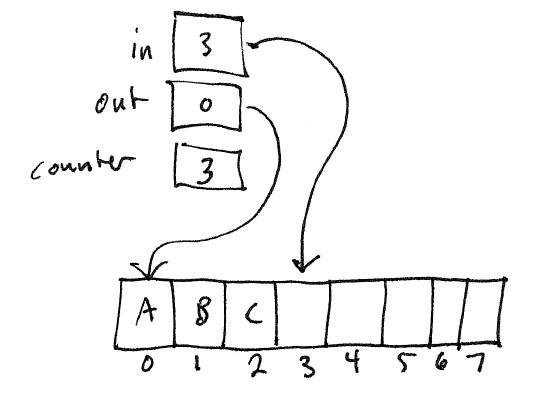 in 3
out 0
counter 3
A B C
0 1 2 3 4 5 6 7